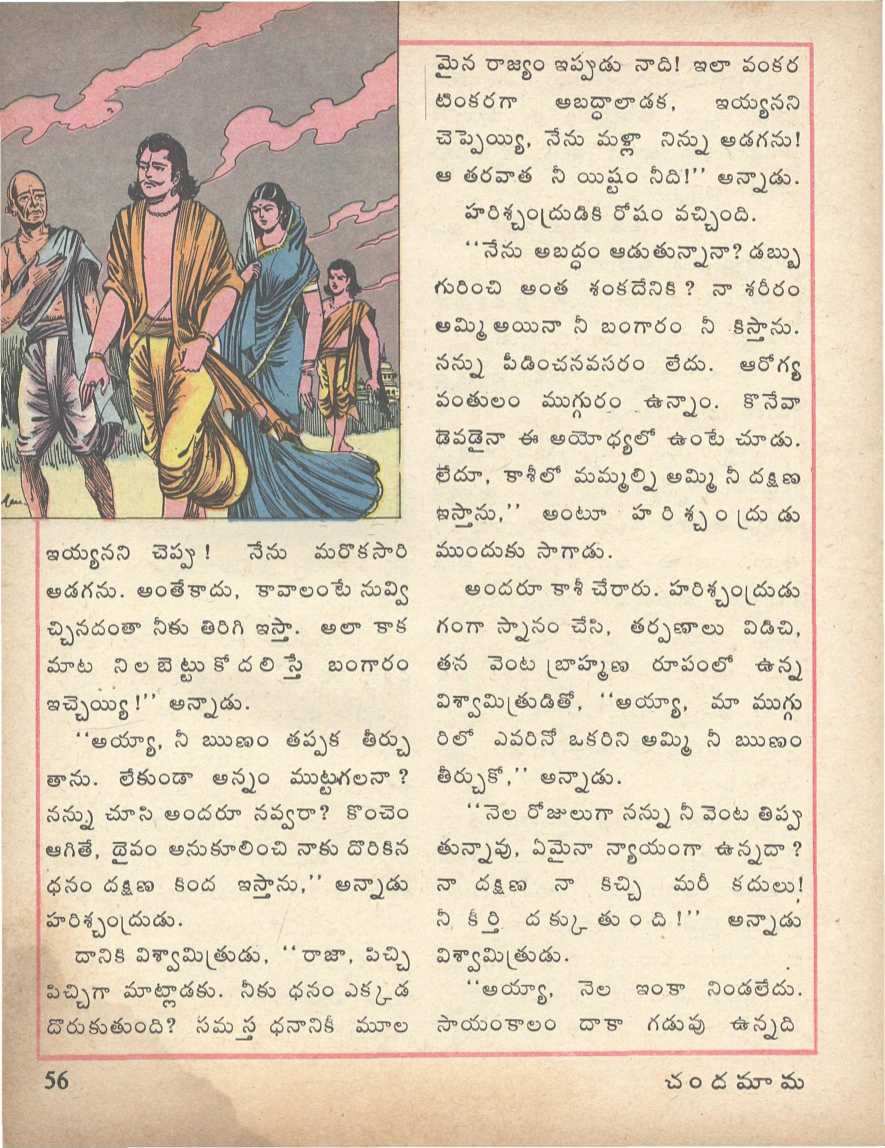 ఇయ్యనని చెప్పు! నేను మరొకసారి
అడగను. అంతేకాదు, కావాలంటే నువ్వి
చ్చినదంతా నీకు తిరిగి ఇస్తా. అలా కాక
మాట నిలబెట్టుకోదలిస్తే బంగారం
ఇచ్చెయ్యి!'' అన్నాడు.
''అయ్యా, నీ ఋణం తప్పక తీర్చు
తాను. లేకుండా అన్నం ముట్టగలనా?
నన్ను చూసి అందరూ నవ్వరా? కొంచెం
ఆగితే, దైవం అనుకూలించి నాకు దొరికిన
ధనం దక్షిణ కింద ఇస్తాను,'' అన్నాడు
హరిశ్చంద్రుడు.
దానికి విశ్వామిత్రుడు, ''రాజా, పిచ్చి
పిచ్చిగా మాట్లాడకు. నీకు ధనం ఎక్కడ
దొరుకుతుంది? సమస్త ధనానికీ మూల
మైన రాజ్యం ఇప్పుడు నాది! ఇలా వంకర
టింకరగా అబద్ధాలాడక, ఇయ్యనని
చెప్పెయ్యి, నేను మళ్లా నిన్ను అడగను!
ఆ తరవాత నీ యిష్టం నీది!'' అన్నాడు.
హరిశ్చంద్రుడికి రోషం వచ్చింది.
''నేను అబద్ధం ఆడుతున్నానా? డబ్బు
గురించి అంత శంకదేనికి? నా శరీరం
అమ్మి అయినా నీ బంగారం నీ కిస్తాను.
నన్ను పీడించనవసరం లేదు. ఆరోగ్య
వంతులం ముగ్గురం ఉన్నాం. కొనేవా
డెవడైనా ఈ అయోధ్యలో ఉంటే చూడు.
లేదూ, కాశీలో మమ్మల్ని అమ్మి నీ దక్షిణ
ఇస్తాను,'' అంటూ హరిశ్చంద్రుడు
ముందుకు సాగాడు.
అందరూ కాశీ చేరారు. హరిశ్చంద్రుడు
గంగా స్నానం చేసి, తర్పణాలు విడిచి,
తన వెంట బ్రాహ్మణ రూపంలో ఉన్న
విశ్వామిత్రుడితో, ''అయ్యా, మా ముగ్గు
రిలో ఎవరినో ఒకరిని అమ్మి నీ ఋణం
తీర్చుకో,'' అన్నాడు.
''నెల రోజులుగా నన్ను నీ వెంట తిప్పు
తున్నావు, ఏమైనా న్యాయంగా ఉన్నదా?
నా దక్షిణ నా కిచ్చి మరీ కదులు!
నీ కీర్తి దక్కుతుంది!'' అన్నాడు
విశ్వామిత్రుడు.
''అయ్యా, నెల ఇంకా నిండలేదు.
సాయంకాలం దాకా గడువు ఉన్నది
56 చందమామ